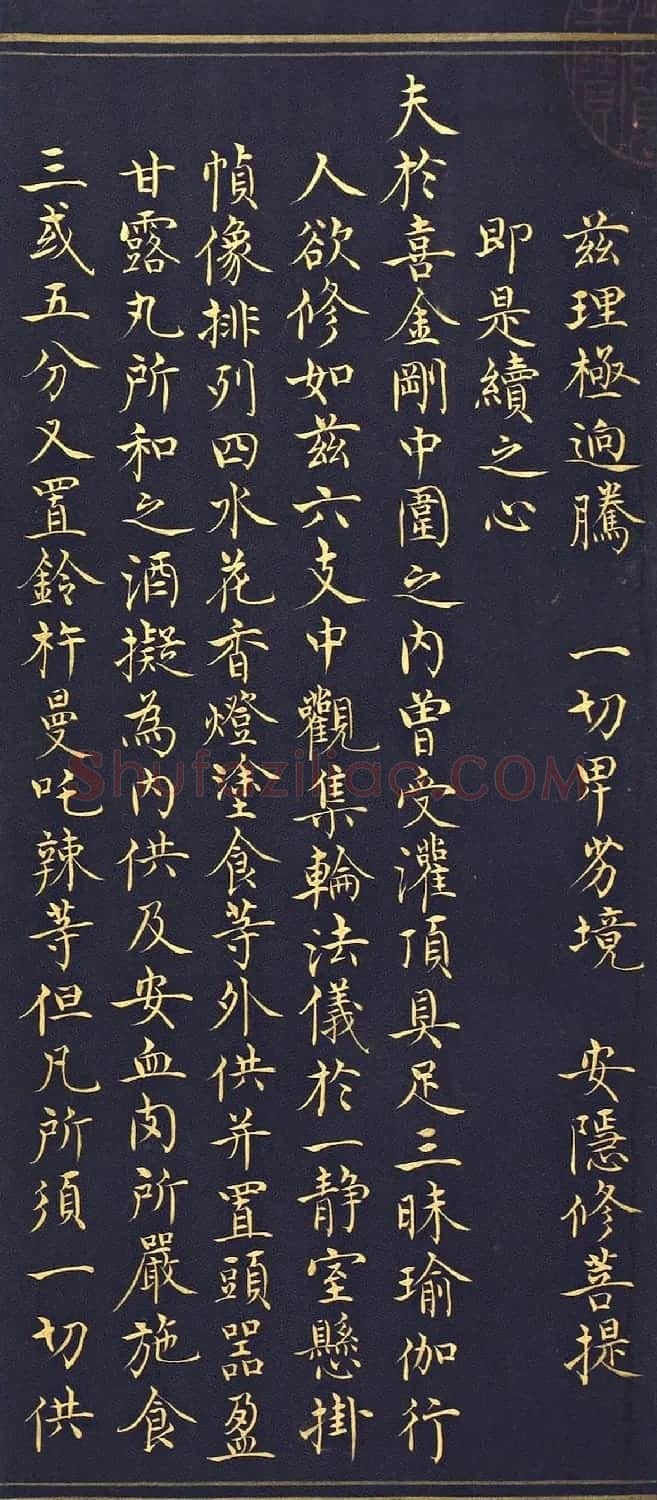 茲理極逈騰 一切畀劣境 安隱修菩提
即是續之心
夫於喜金剛中圍之內曾受灌頂具足三昧瑜伽行
人欲修如茲六支中觀集輪法儀於一靜室懸掛
幀像排列四水花香燈塗食等外供并置頭器盈
甘露丸所和之酒擬為內供及安血肉所嚴施食
三或五分又置鈴杵曼吒辣等但凡所須一切供
Shufaziliao.COM